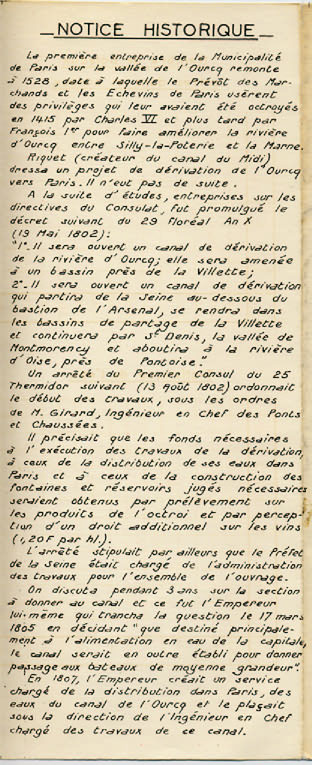 NOTICE HISTORIQUE
La première entreprise de la Municipalité
de Paris sur la vallée de l'Ourcq remonte
à 1528, date à laquelle le Prévôt des Mar-
chands et les Echevins de Paris usèrent
des privilèges qui leur avaient été octroyés
en 1415 par Charles VI et plus tard par
François 1er pour faire améliorer la rivière
d'Ourcq entre Silly-la-Poterie et la Marne.
Riquet (créateur du canal du Midi)
dressa un projet de dérivation de l'Ourcq
vers Paris. Il n'eut pas de suite.
A la suite d'études, entreprises sur les
directives du Consulat, fut promulgué le
décret suivant du 29 Floréal An X
(19 Mai 1802):
"1°- Il sera ouvert un canal de dérivation
de la rivière d'Ourcq; elle sera amenée
à un bassin près de la Villette;
2°- Il sera ouvert un canal de dérivation
qui partira de la Seine au-dessous du
bastion de l'Arsenal, se rendra dans
les bassins de partage de la Villette
et continuera par St Denis, la vallée de
Montmorency et aboutira à la rivière
d'Oise, près de Pontoise."
Un arrêté du Premier Consul du 25
Thermidor suivant (13 Août 1802) ordonnait
le début des travaux, sous les ordres
de M. Girard, Ingénieur en Chef des Ponts
et Chaussées.
Il précisait que les fonds nécessaires
à l'exécution des travaux de la dérivation,
à ceux de la distribution de ses eaux dans
Paris et à ceux de la construction des
fontaines et réservoirs jugés nécessaires
seraient obtenus par prélèvement sur
les produits de l'octroi et par percep-
tion d'un droit additionnel sur les vins
(1,20F par hl.).
L'arrêté stipulait par ailleurs que le Préfet
de la Seine était chargé de l'administration
des travaux pour l'ensemble de l'ouvrage.
On discuta pendant 3 ans sur la section
à donner au canal et ce fut l'Empereur
lui-même qui trancha la question le 17 mars
1805 en décidant "que destiné principale-
ment à l'alimentation en eau de la capitale,
le canal serait en outre établi pour donner
passage aux bateaux de moyenne grandeur".
En 1807, l'Empereur créait un service
chargé de la distribution dans Paris, des
eaux du canal de l'Ourcq et le plaçait
sous la direction de l'Ingénieur en Chef
chargé des travaux de ce canal.